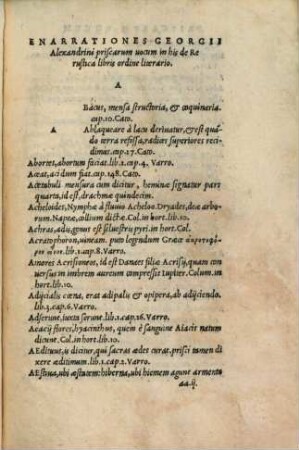 ENARRATIONES GEORGII
Alexandrini priscarum uocum in his de Re
rustica libris ordine literario.
A
Bacus, mensa structoria, & coquinaria.
cap.10. Cato.
A Ablaqueare à lacu deriuatur, & est quã
do terra refissa, radices superiores reci
dimus. cap.17. Cato.
Abortet, abortum faciat. lib.2. cap.4. Varro.
Aceat, acidum fiat. cap.148. Cato.
Acetabuli mensura cum dicitur, heminæ signatur pars
quarta, id est, drachmæ quindecim.
Acheloides, Nymphæ à fluuio Acheloo. Dryades, deæ arb
orum. Napææ, collium dictæ. Col. in hort. lib.10.
Achras, adu, genus est siluestris pyri in hort. Col.
Acratophoron, uineam. puto legendum Græce
. lib.1. cap.8. Varro.
Ameres Acrisioneos, id est Danaes filiæ Acrisij, quam con
uersus in imbrem aureum compressit Iupiter. Colum. in
hort. lib.10.
Adijcialis cœna, erat adipalis & opipera, ab adijciendo.
lib.3. cap.6. Varro.
Adserune, iuxta serune. lib.1. cap.16. Varro.
Aeacij flores, hyacinthus, quem è sanguine Aiacis natum
dicunt. Col. in hort. lib.10.
AEdituus, is dicitur, qui sacras ædes curat. prisci tamen di
xere æditimum. lib.1. cap.2. Varro.
AEstiua, ubi æstatem: hiberna, ubi hiemem agunt armento
aa.ij.